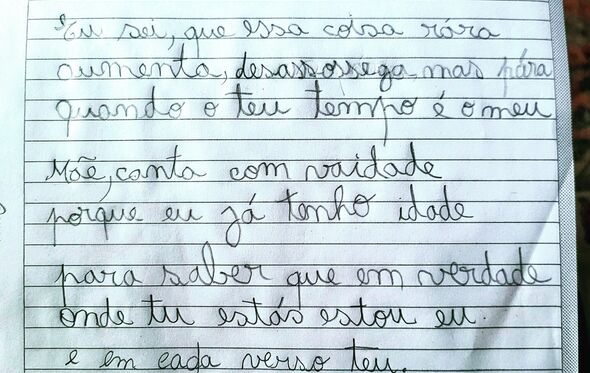 Eu sei, que essa coisa rára
aumenta, desassossega, mas pára
quando o teu tempo é o meu
Mãe, canta com vaidade
porque eu já tenho idade
para saber que em verdade
onde tu estás estou eu.
e em cada verso teu.